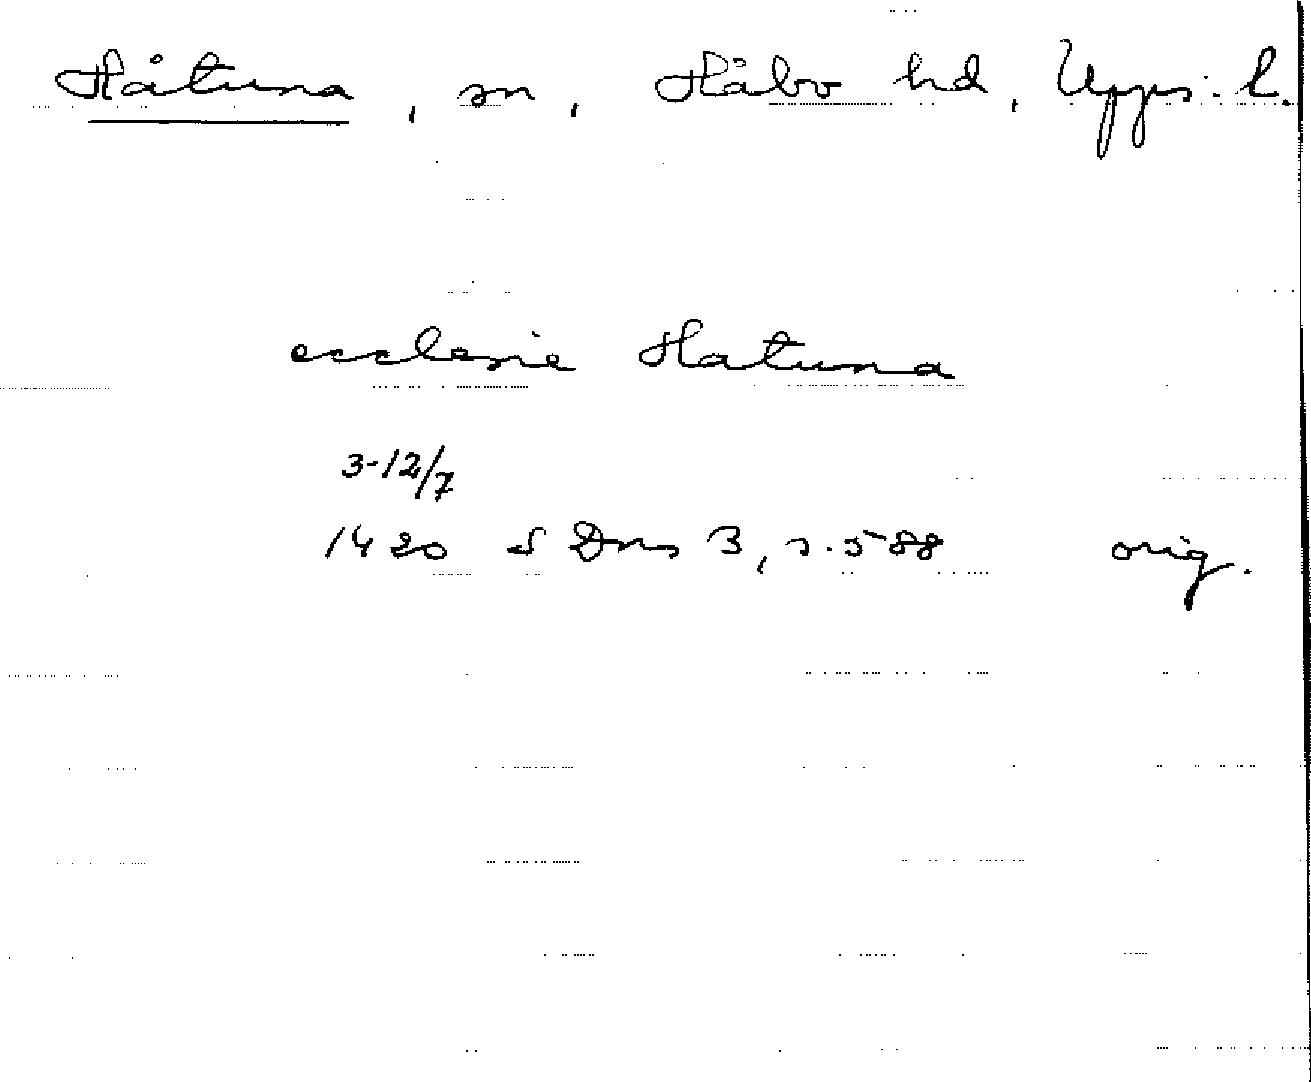 Håtuna, sn, Håbo hd, Upps. l.
ecclesie Hatuna
3-12/7
1420 SDns 3, s. 588 orig.